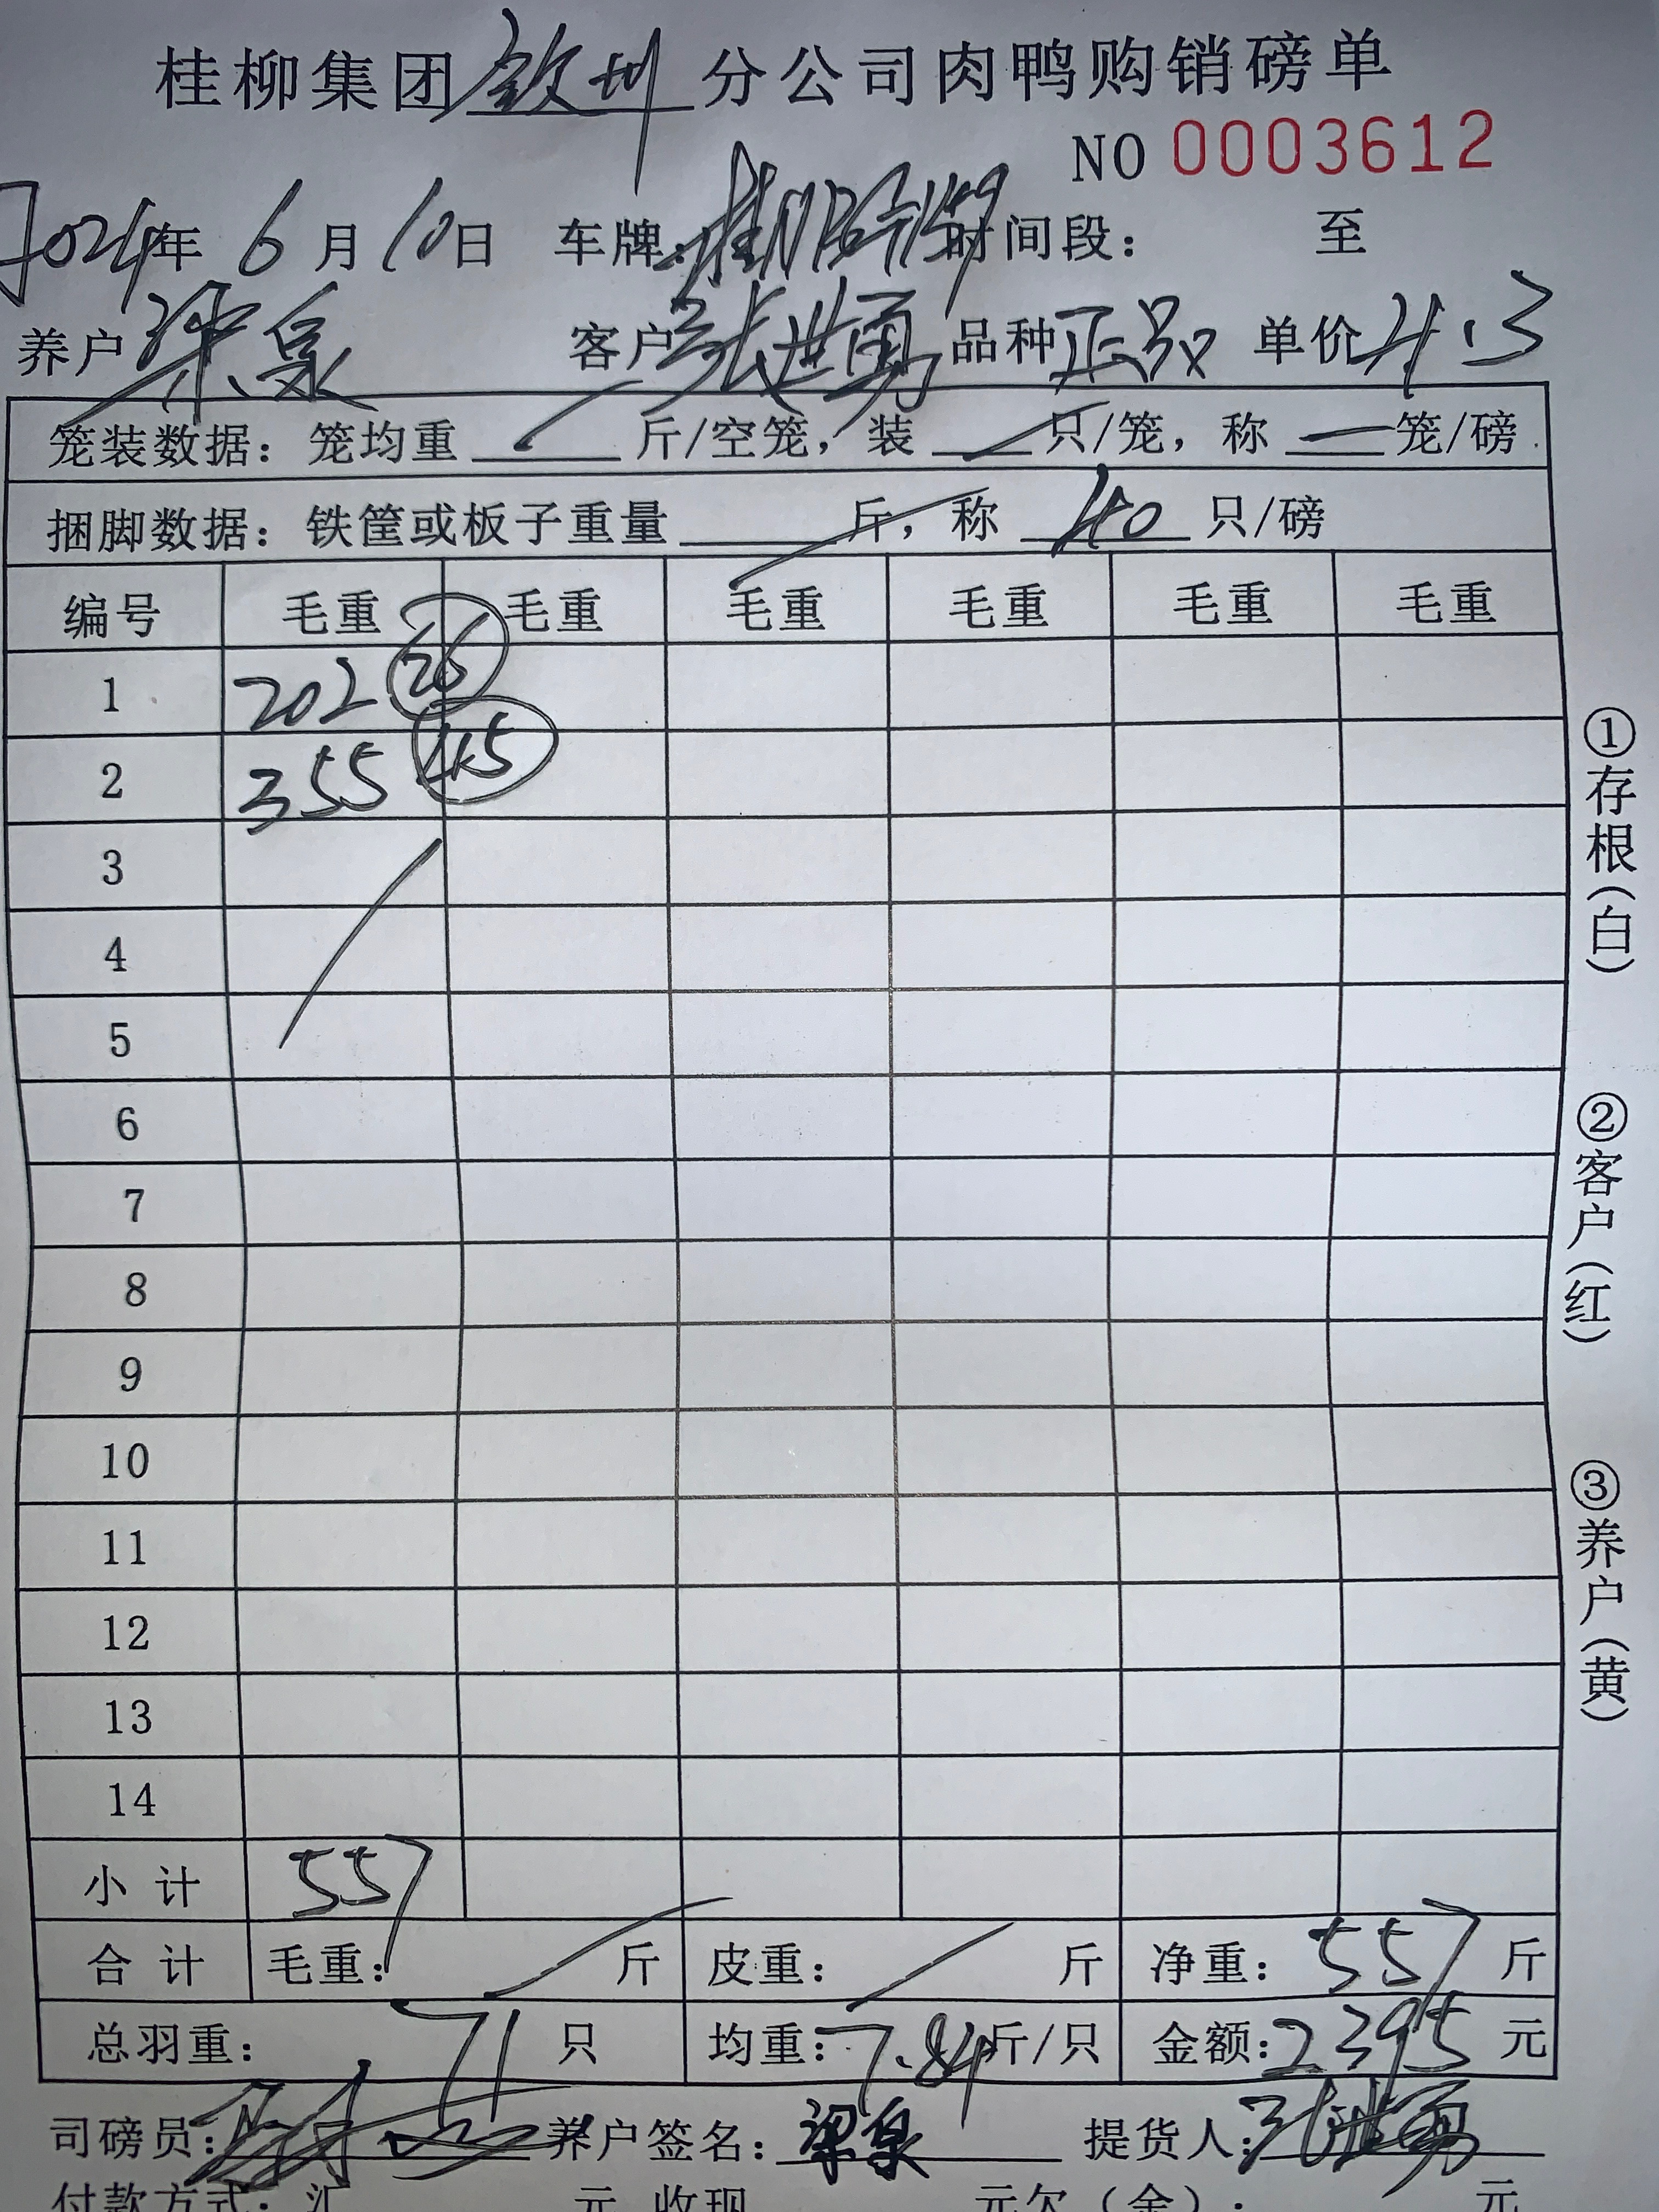 桂柳集团钦州分公司肉鸭购销磅单
NO 0003612
2024年 6月 10日 车牌: 时间段: 至
养户 梁泉 客户 张进勇 品种 正品 单价 4.3
笼装数据: 笼均重 斤/空笼, 装 只/笼, 称 笼/磅
捆脚数据: 铁筐或板子重量 斤, 称 40 只/磅
编号 毛重 毛重 毛重 毛重 毛重 毛重
1 202 26
2 355 45
3
4
5
6
7
8
9
10
11
12
13
14
小计 557
合计 毛重: 斤 皮重: 斤 净重: 557 斤
总羽重: 71 只 均重: 7.84 斤/只 金额: 2395 元
司磅员: 养户签名: 梁泉 提货人: 张进勇
付款方式: 汇 元 收现 元欠(金): 元
①存根(白)
②客户(红)
③养户(黄)